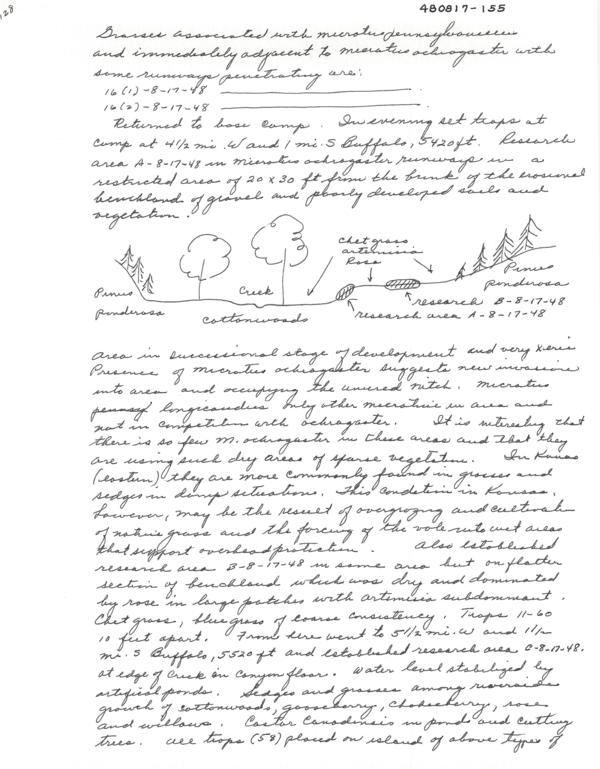 128
480817-155
Grasses associated with microtus pennsylvanicus
and immediately adjacent to microtus ochrogaster with
some runways penetrating are:
16(1)-8-17-48
16(2)-8-17-48
Returned to base camp. In evening set traps at
camp at 4 1/2 mi. W and 1 mi. S Buffalo, 5420 ft. Research
area A-8-17-48 in microtus ochrogaster runways in a
restricted area of 20 x 30 ft from the bank of the erosional
benchland of gravel and poorly developed soils and
vegetation.
Chet grass
artemisia
Rosa
Pinus
ponderosa
Creek
Cottonwoods
Pinus
ponderosa
research B-8-17-48
research area A-8-17-48
area in successional stage of development and very xeric
Presence of microtus ochrogaster suggests new invasion
into area and occupying the unused nitch. Microtus
pennsy longicaudus only other microtine in area and
not in competition with ochrogaster. It is interesting that
there is so few M. ochrogaster in these areas and that they
are using such dry areas of sparse vegetation. In Kansas
(eastern) they are more commonly found in grasses and
sedges in damp situations. This condition in Kansas,
however, may be the result of overgrazing and cultivation
of native grass and the forcing of the vole into wet areas
that support overhead protection. Also established
research area B-8-17-48 in same area but on flatter
section of benchland which was dry and dominated
by rose in large patches with artemisia subdominant.
Chet grass, blue grass of coarse consistency. Traps 11-60
10 feet apart. From here went to 5 1/2 mi. W and 1 1/2
mi. S Buffalo, 5520 ft and established research area C-8-17-48.
at edge of Creek on Canyon floor. Water level stabilized by
artifical ponds. Sedges and grasses among riverside
growth of cottonwoods, gooseberry, chokecherry, rose
and willows. Castor Canadensis in ponds and cutting
trees. All traps (58) placed on island of above types of